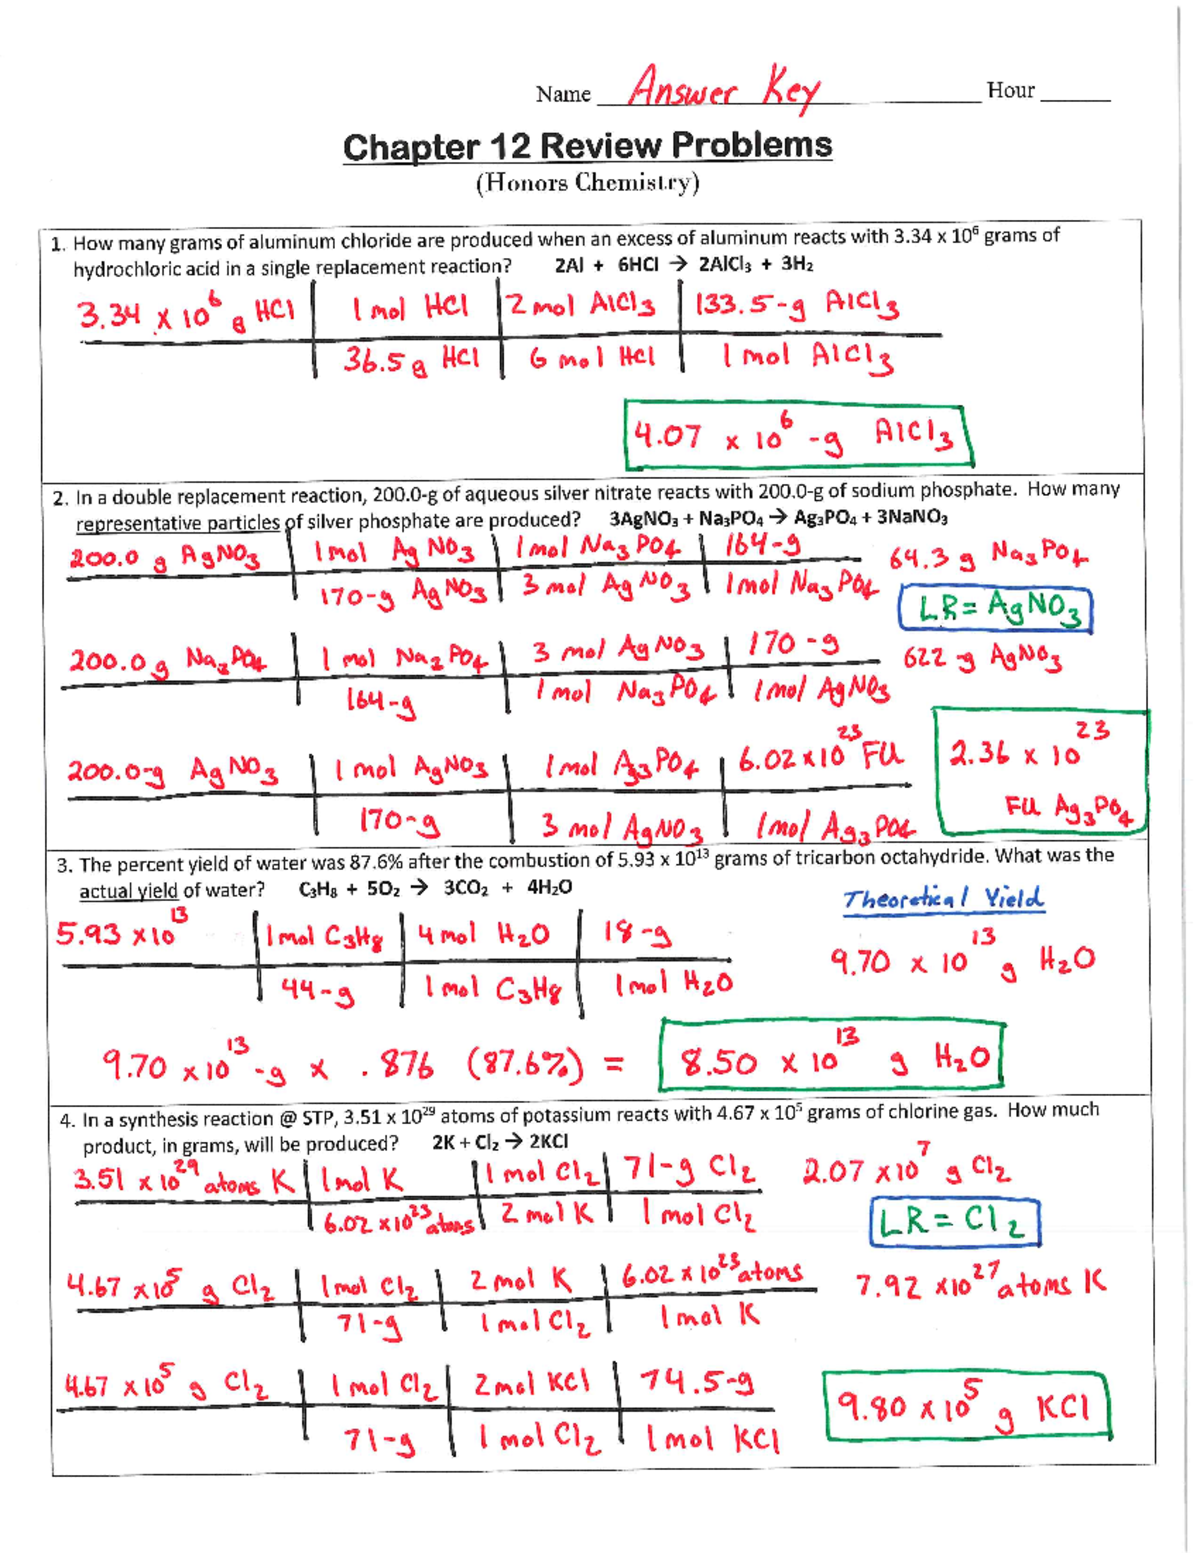 Name Answer Key Hour
Chapter 12 Review Problems
(Honors Chemistry)
1. How many grams of aluminum chloride are produced when an excess of aluminum reacts with 3.34 x 10⁶ grams of
hydrochloric acid in a single replacement reaction? 2Al + 6HCl → 2AlCl₃ + 3H₂
3.34 x 10⁶ g HCl | 1 mol HCl | 2 mol AlCl₃ | 133.5-g AlCl₃
36.5 g HCl | 6 mol HCl | 1 mol AlCl₃
4.07 x 10⁶ -g AlCl₃
2. In a double replacement reaction, 200.0-g of aqueous silver nitrate reacts with 200.0-g of sodium phosphate. How many
representative particles of silver phosphate are produced? 3AgNO₃ + Na₃PO₄ → Ag₃PO₄ + 3NaNO₃
200.0 g AgNO₃ | 1 mol AgNO₃ | 1 mol Na₃PO₄ | 164-g 64.3 g Na₃PO₄
170-g AgNO₃ | 3 mol AgNO₃ | 1 mol Na₃PO₄ LR = AgNO₃
200.0 g Na₃PO₄ | 1 mol Na₃PO₄ | 3 mol AgNO₃ | 170-g 622-g AgNO₃
164-g | 1 mol Na₃PO₄ | 1 mol AgNO₃
200.0-g AgNO₃ | 1 mol AgNO₃ | 1 mol Ag₃PO₄ | 6.02 x 10²³ FU 2.36 x 10²³
170-g | 3 mol AgNO₃ | 1 mol Ag₃PO₄ FU Ag₃PO₄
3. The percent yield of water was 87.6% after the combustion of 5.93 x 10¹³ grams of tricarbon octahydride. What was the
actual yield of water? C₃H₈ + 5O₂ → 3CO₂ + 4H₂O
Theoretical Yield
5.93 x 10¹³ | 1 mol C₃H₈ | 4 mol H₂O | 18-g 9.70 x 10¹³ g H₂O
44-g | 1 mol C₃H₈ | 1 mol H₂O
9.70 x 10¹³ -g x .876 (87.6%) = 8.50 x 10¹³ g H₂O
4. In a synthesis reaction @ STP, 3.51 x 10²⁹ atoms of potassium reacts with 4.67 x 10⁵ grams of chlorine gas. How much
product, in grams, will be produced? 2K + Cl₂ → 2KCl
3.51 x 10²⁹ atoms K | 1 mol K | 1 mol Cl₂ | 71-g Cl₂ 2.07 x 10⁷ g Cl₂
6.02 x 10²³ atoms | 2 mol K | 1 mol Cl₂ LR = Cl₂
4.67 x 10⁵ g Cl₂ | 1 mol Cl₂ | 2 mol K | 6.02 x 10²³ atoms 7.92 x 10²⁷ atoms K
71-g | 1 mol Cl₂ | 1 mol K
4.67 x 10⁵ g Cl₂ | 1 mol Cl₂ | 2 mol KCl | 74.5-g 9.80 x 10⁵ g KCl
71-g | 1 mol Cl₂ | 1 mol KCl